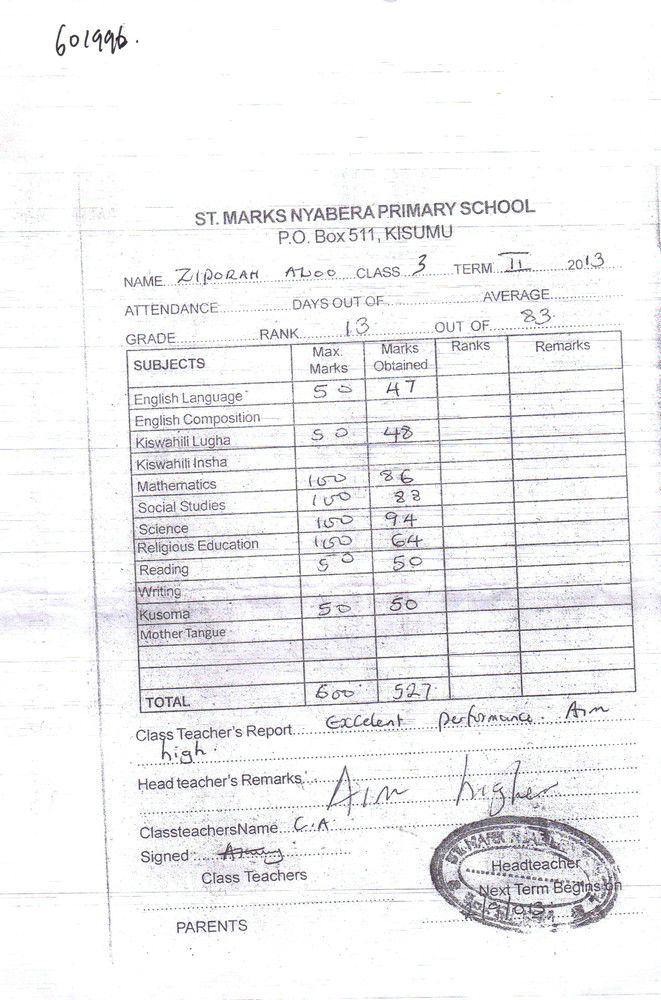 601996.
ST. MARKS NYABERA PRIMARY SCHOOL
P.O. Box 511, KISUMU
NAME ZIPORAH ALOO CLASS 3 TERM II 2013
ATTENDANCE DAYS OUT OF AVERAGE
GRADE RANK 13 OUT OF 83.
SUBJECTS Max. Marks Marks Obtained Ranks Remarks
English Language 50 47
English Composition
Kiswahili Lugha 50 48
Kiswahili Insha
Mathematics 100 86
Social Studies 100 88
Science 100 94
Religious Education 100 64
Reading 50 50
Writing
Kusoma 50 50
Mother Tangue
TOTAL 600 527
Class Teacher's Report Excelent performance. Aim
high.
Head teacher's Remarks Aim higher
ClassteachersName C.A
Signed
Class Teachers
Headteacher
Next Term Begins on
PARENTS